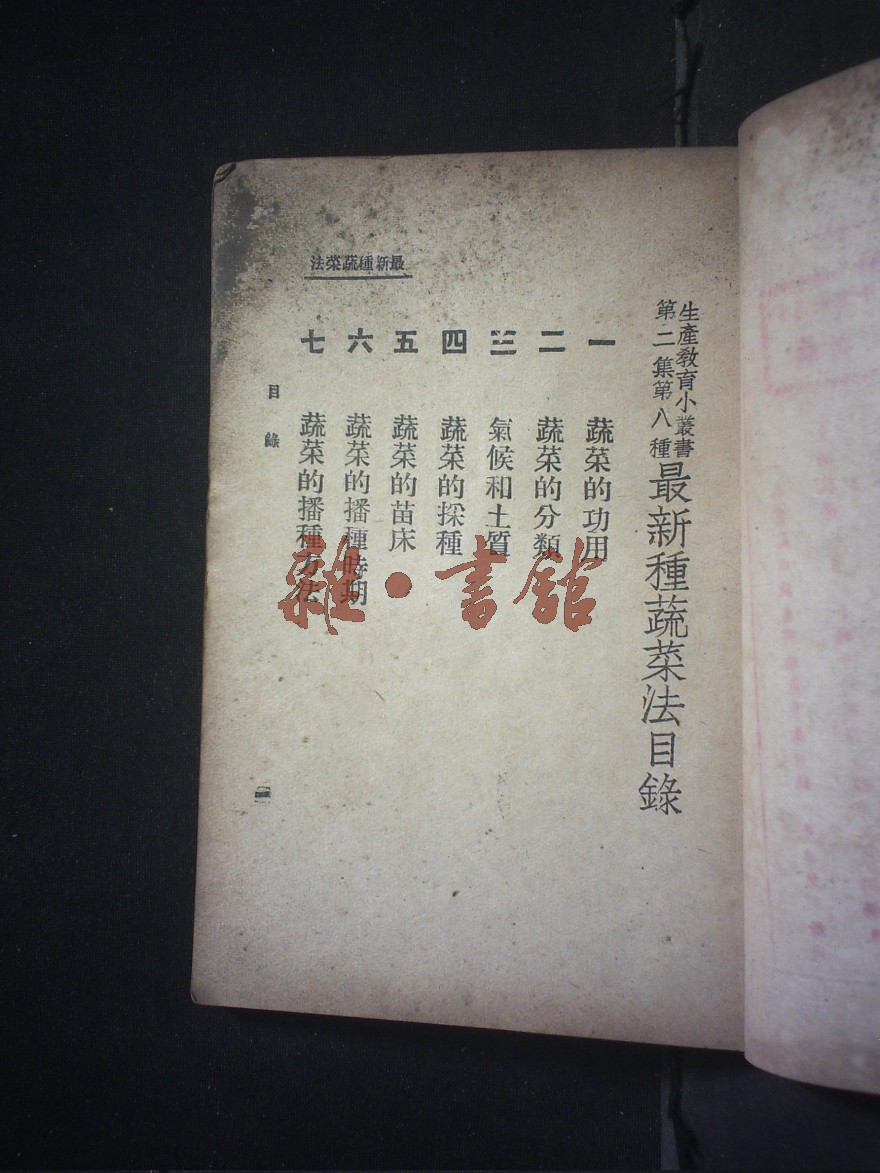 生產敎育小叢書
第二集第八種
最新種蔬菜法目錄
一 蔬菜的功用
二 蔬菜的分類
三 氣候和土質
四 蔬菜的採種
五 蔬菜的苗床
六 蔬菜的播種時期
七 蔬菜的播種方法
最新種蔬菜法
目錄
雜·書館